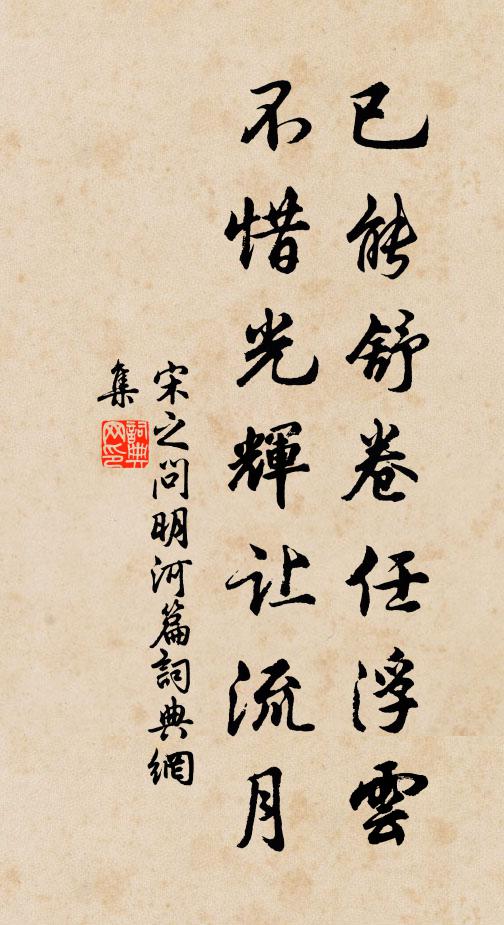 已能舒卷任浮雲
不惜光輝让流月
宋之问明河篇詞典網
集
詞典网印